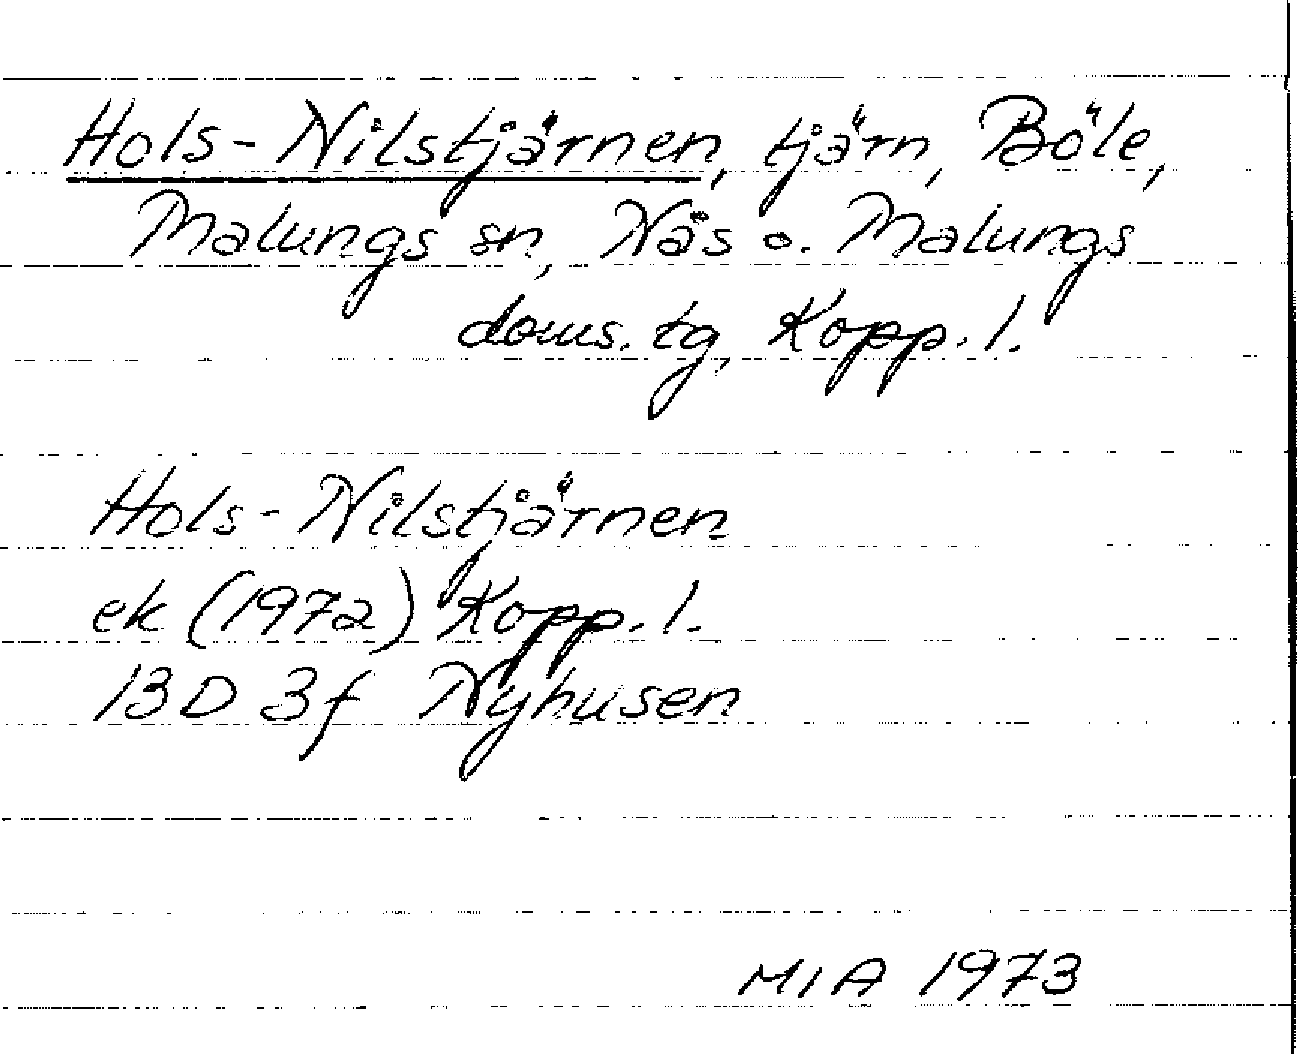 Hols-Nilstjärnen, tjärn, Böle,
Malungs sn, Nås o. Malungs
doms. tg, Kopp. l.
Hols-Nilstjärnen
ek (1972) Kopp. l.
13D 3f Nyhusen
MIA 1973